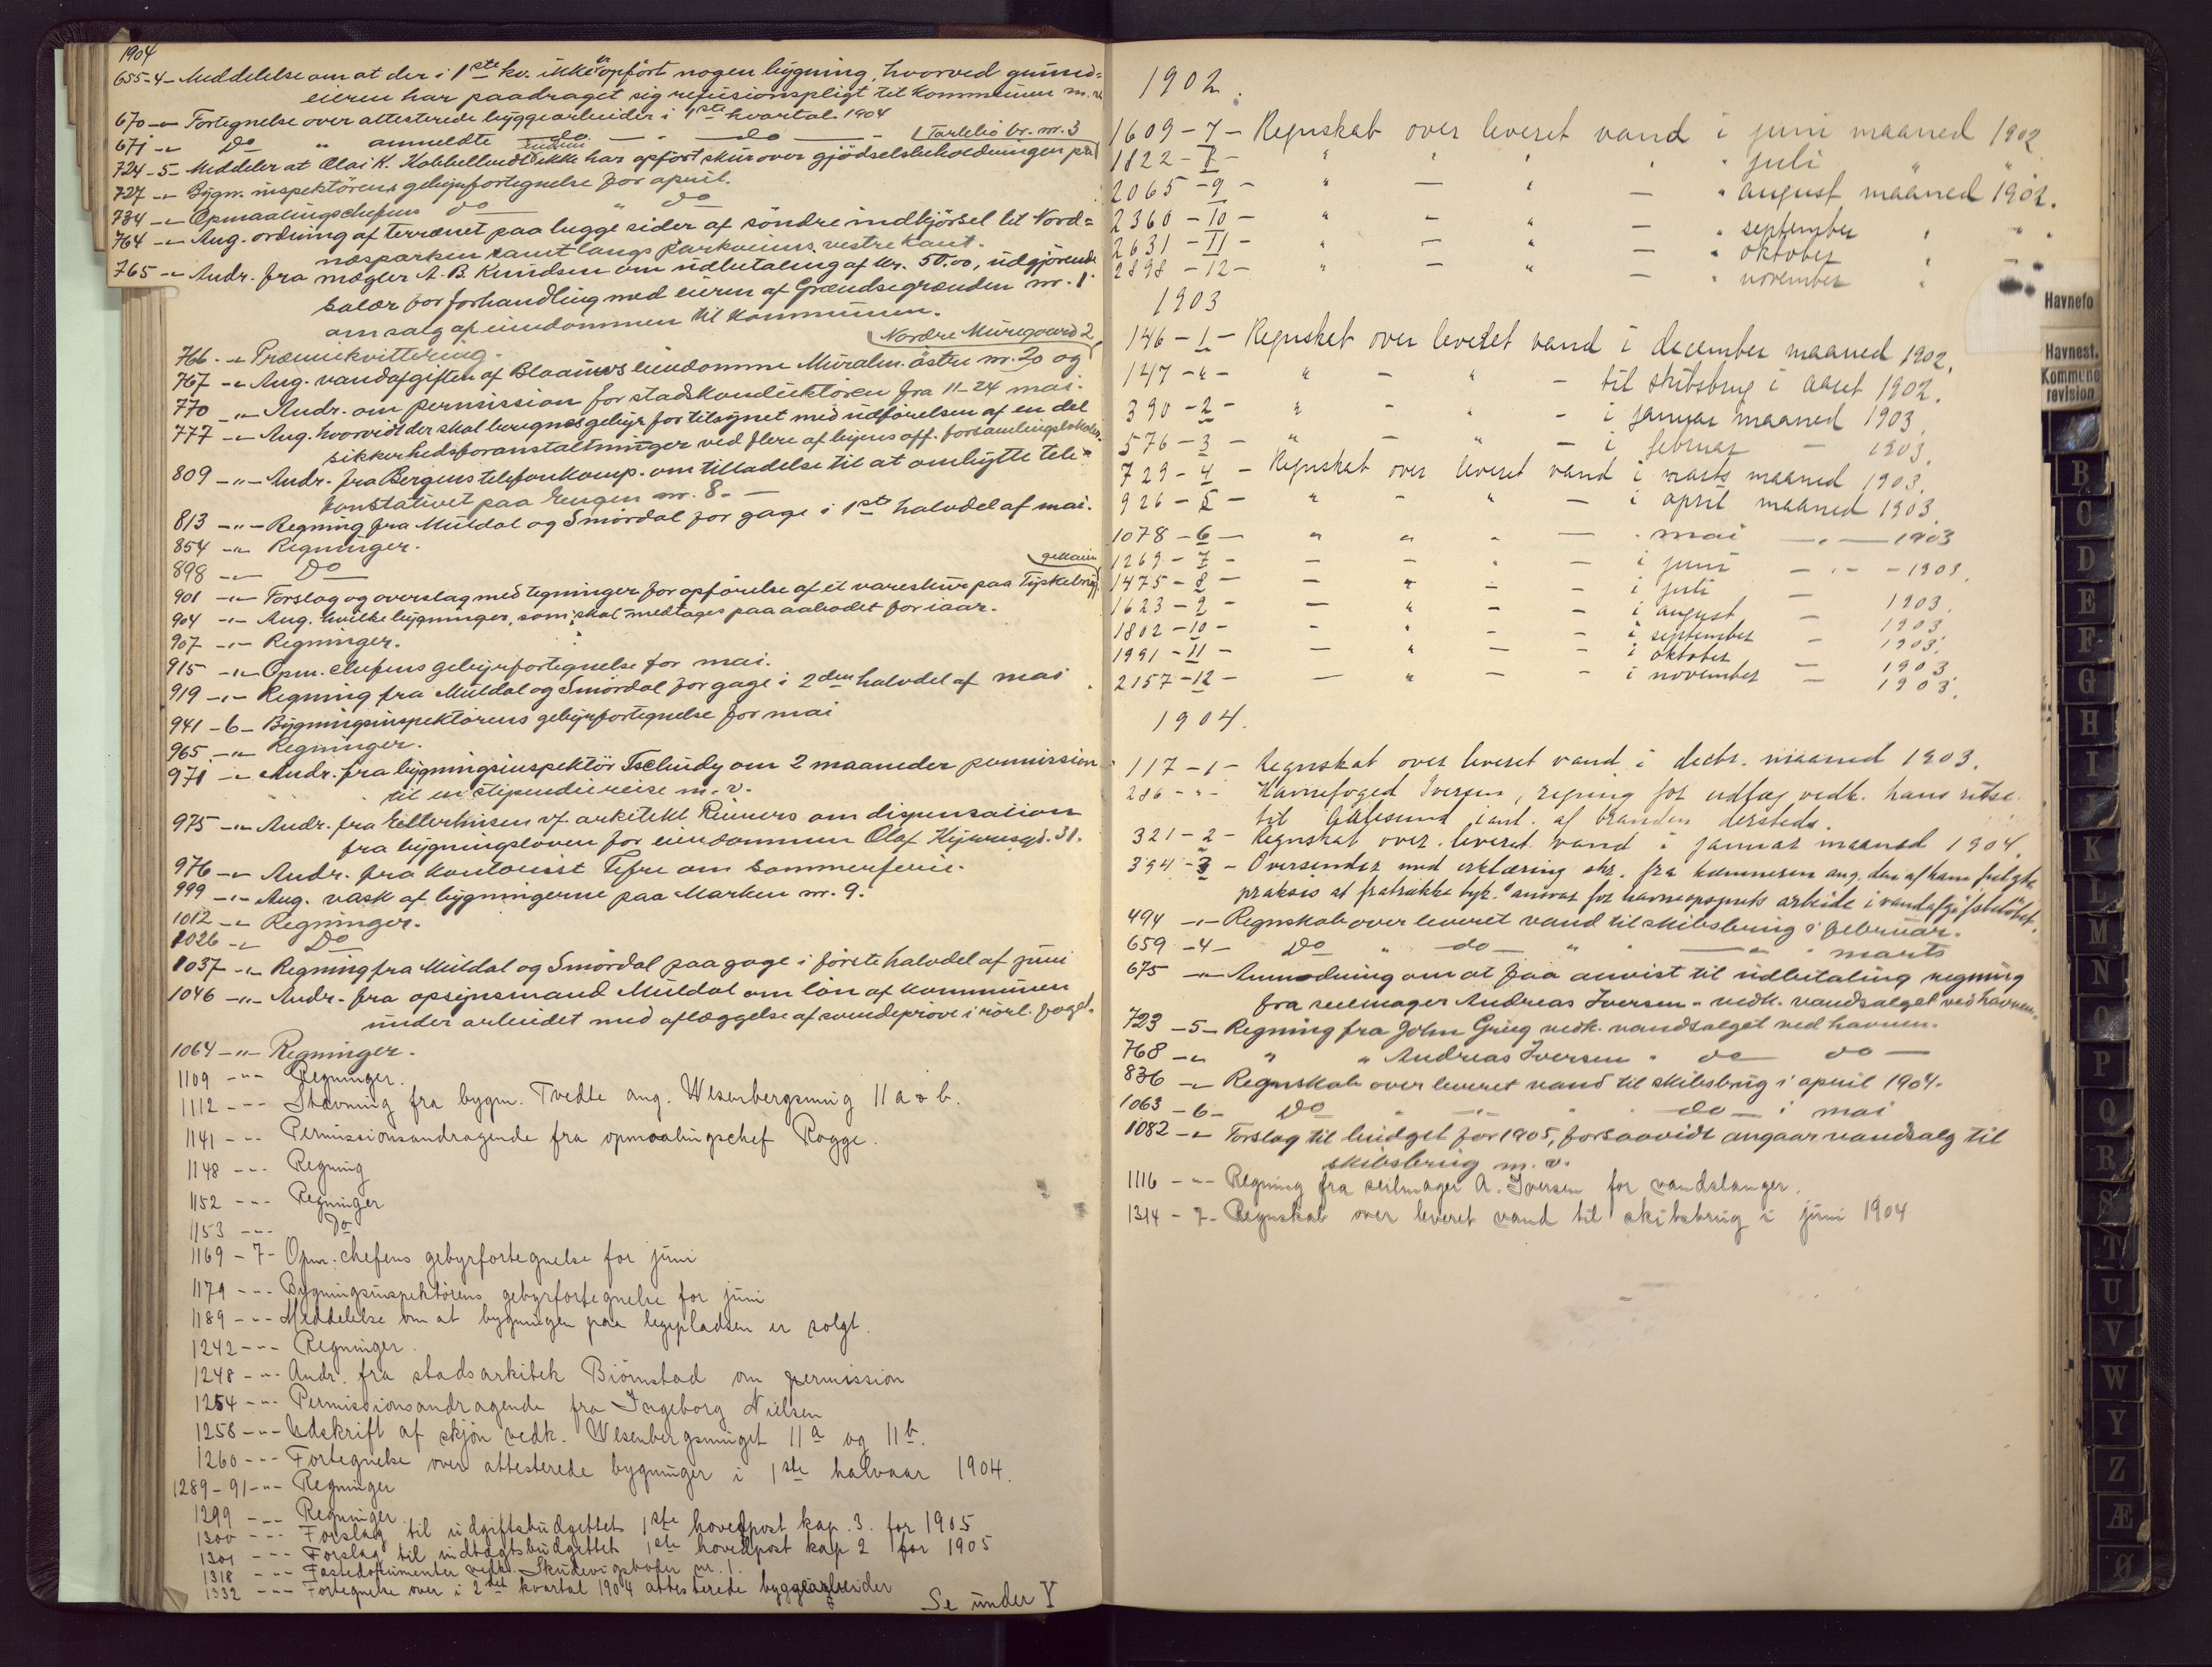 1904
655-4- Meddelelse om at der i 1ste kv. ikke er opført nogen bygning, hvorved grund=
eieren har paadraget sig refusionspligt til kommunen m. v.
670 -"- Fortegnelse over attesterede byggearbeider i 1ste kvartal 1904
671 -"- Do " anmeldte do - do -
Tartlebö br. nr. 3
724-5- Meddeler at Olai K. Kobbeltvedt endnu ikke har opført skur over gjödselsbeholdningen paa
727 -"- Bygn. inspektörens gebyrfortegnelse for april.
734 -"- Opmaalingschefens do " do
764 -"- Ang. ordning af terrænet paa begge sider af söndre indkjörsel til Nord=
næsparken samt langs Parkveiens vestre kant.
765 -"- Andr. fra mægler A. B. Knudsen om udbetaling af kr. 50.00, udgjörende
salær for forhandling med eieren af Grændsegrænden nr. 1
om salg af eiendommen til kommunen.
766 -"- Præmiekvittering.
Nordre Muregaard 2
767 -"- Ang. vandafgiften af Blaauws eiendomme Muralm. östre nr. 20 og
770 -"- Andr. om permission for stadskonduktören fra 11-24 mai.
777 -"- Ang. hvorvidt der skal beregnes gebyr for tilsynet med udförelsen af en del
sikkerhedsforanstaltninger ved flere af byens off. forsamlingslokaler.
809 -"- Andr. fra Bergens telefonkomp. om tilladelse til at ombytte tele=
fonstativet paa Engen nr. 8. -
813 -"- Regning fra Muldal og Smördal for gage i 1ste halvdel af mai.
854 -"- Regninger.
898 -"- Do
901 -"- Forslag og overslag med tegninger for opförelse af et vareskur paa Tyskebrygg
904 -"- Ang. hvilke bygninger, som skal medtages paa aabodet for iaar.
907 -"- Regninger.
915 -"- Opm. chefens gebyrfortegnelse for mai.
919 -"- Regning fra Muldal og Smördal for gage i 2den halvdel af mai
941 -6- Bygningsinspektörens gebyrfortegnelse for mai
965 -"- Regninger.
971 -"- Andr. fra bygningsinspektör Tschudy om 2 maaneder permission
til en stipendiereise m. v.
975 -"- Andr. fra Ellerhusen v/ arkitekt Reimers om dispensation
fra bygningsloven for eiendommen Olaf Kyrresgd. 31.
976 -"- Andr. fra kontorist Tefre om sommerferie.
999 -"- Ang. vask af bygningerne paa Marken nr. 9.
1012 -"- Regninger.
1026 -"- Do
1037 -"- Regning fra Muldal og Smördal paa gage i förste halvdel af juni
1046 -"- Andr. fra opsynsmand Muldal om lön af kommunen
under arbeidet med aflæggelse af svendepröve i rörl. faget.
1064 -"- Regninger.
1109 -"- Regninger.
1112 -"- Skrivning fra bygm. Tvedte ang. Wesenbergsmug 11 a & b.
1141 -"- Permissionsandragende fra opmaalingschef Rogge.
1148 -"- Regning
1152 -"- Regninger
1153 -"- Do
1169 -7- Opm. chefens gebyrfortegnelse for juni
1179 -"- Bygningsinspektörens gebyrfortegnelse for juni
1189 -"- Meddelelse om at bygningen paa legepladsen er solgt.
1242 -"- Regninger.
1248 -"- Andr. fra stadsarkitek Biörnstad om permission
1254 -"- Permissionsandragende fra Ingeborg Nielsen
1258 -"- Udskrift af skjön vedk. Wesenbergsmuget 11a og 11b.
1260 -"- Fortegnelse over attesterede bygninger i 1ste halvaar 1904.
1289-91 -"- Regninger
1299 -"- Regninger.
1300 -"- Forslag til udgiftsbudgettets 1ste hovedpost kap. 3. for 1905
1301 -"- Forslag til indtægtsbudgettets 1ste hovedpost kap 2 for 1905
1318 -"- Fæstedokumenter vedk. Skudevigsboder nr. 1.
1332 -"- Fortegnelse over i 2det kvartal 1904 attesterede byggearbeider
Se under Y
1902.
1609-7- Regnskab over leveret vand i juni maaned 1902
1822-8- " " " " juli " "
2065-9- " - " - " august maaned 1902.
2360-10- " - " - " september " "
2631-11- " - " - " oktober " -
2898-12- " - " - " november "
1903
146-1- Regnskab over leveret vand i december maaned 1902.
147-"- " - " - til skibsbrug i aaret 1902.
390-2- " - " - i januar maaned 1903.
576-3- " - " - i februar - 1903.
729-4- Regnskab over leveret vand i marts maaned 1903.
926-5- " - " - i april maaned 1903.
1078-6- " " " - " mai -"- 1903
1269-7- - - " - i juni -"- 1903.
1475-8- - " - - i juli - 1903.
1623-9- - " - - i august - 1903.
1802-10- - " - - i september - 1903.
1991-11- - " - - i oktober - 1903.
2157-12- - " - - i november - 1903.
1904.
117-1- Regnskab over leveret vand i decbr. maaned 1903.
286-"- Havnefoged Iversen, regning for udlæg vedk. hans reise
til Aalesund i anl. af branden dersteds.
321-2- Regnskab over leveret vand i januar maaned 1904.
394-3- Oversender med erklæring skr. fra kæmneren ang. den af ham fulgte
praksis at fratrække for havneopsynets arbeide i vandafgiftsbelöbet.
494 -"- Regnskab over leveret vand til skibsbrug i februar.
659 -4- Do " do - " - " marts
675 -"- Anmodning om at faa anvist til udbetaling regning
fra seilmager Andreas Iversen - vedk. vandsalget ved havnen.
723 -5- Regning fra John Grieg vedk. vandsalget ved havnen.
768 -"- " " Andreas Iversen " do do -
836 -"- Regnskab over leveret vand til skibsbrug i april 1904.
1063 -6- Do " -"- " do - i mai
1082 -"- Forslag til budget for 1905, forsaavidt angaar vandsalg til
skibsbrug m. v.
1116 -"- Regning fra seilmager A. Iversen for vandslanger.
1314 -7- Regnskab over leveret vand til skibsbrug i juni 1904
Havnefo
Havnest.
Kommune
revision
B
C
D
E
F
G
H
I
J
K
L
M
N
O
P
Q
R
S
T
U
V
W
Y
Z
Æ
Ø